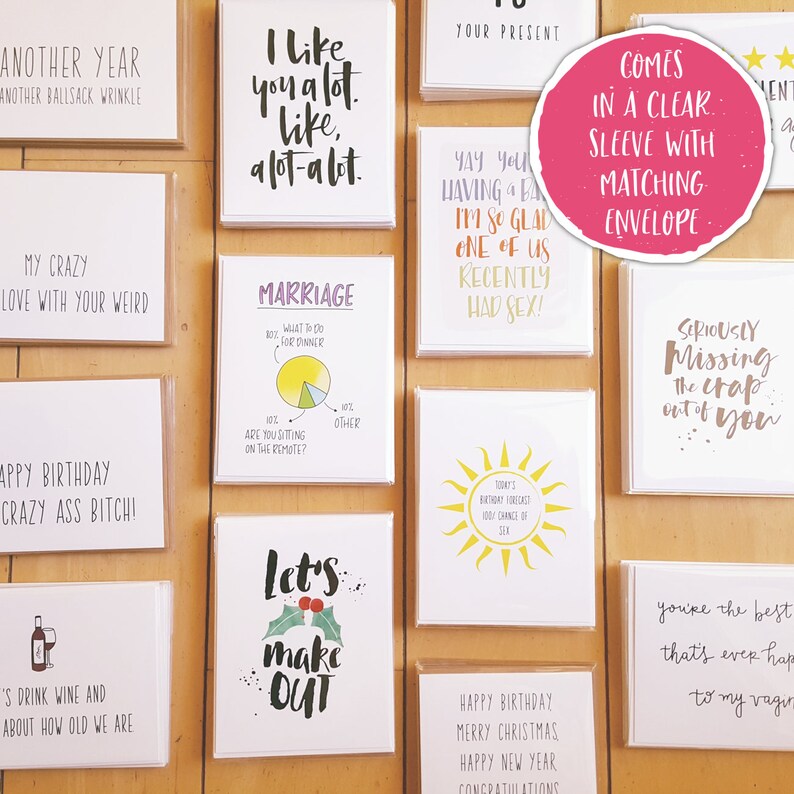 ANOTHER YEAR
ANOTHER BALLSACK WRINKLE
MY CRAZY
LOVE WITH YOUR WEIRD
APPY BIRTHDAY
CRAZY ASS BITCH!
'S DRINK WINE AND
ABOUT HOW OLD WE ARE
I like
you a lot.
like,
a lot-a lot.
MARRIAGE
80% WHAT TO DO
FOR DINNER
10%
ARE YOU SITTING
ON THE REMOTE?
10%
OTHER
Let's
make
OUT
YOUR PRESENT.
YAY YOU
HAVING a BA
I'M SO GLAD
ONE OF US
RECENTLY
HAD SEX!
TODAY'S
BIRTHDAY FORECAST
100% CHANCE OF
SEX
HAPPY BIRTHDAY,
MERRY CHRISTMAS,
HAPPY NEW YEAR,
CONGRATULATIONS
COMES
IN A CLEAR
SLEEVE WITH
MATCHING
ENVELOPE
SERIOUSLY
Missing
the crap
out of you
you're the best
that's ever hap
to my vagin